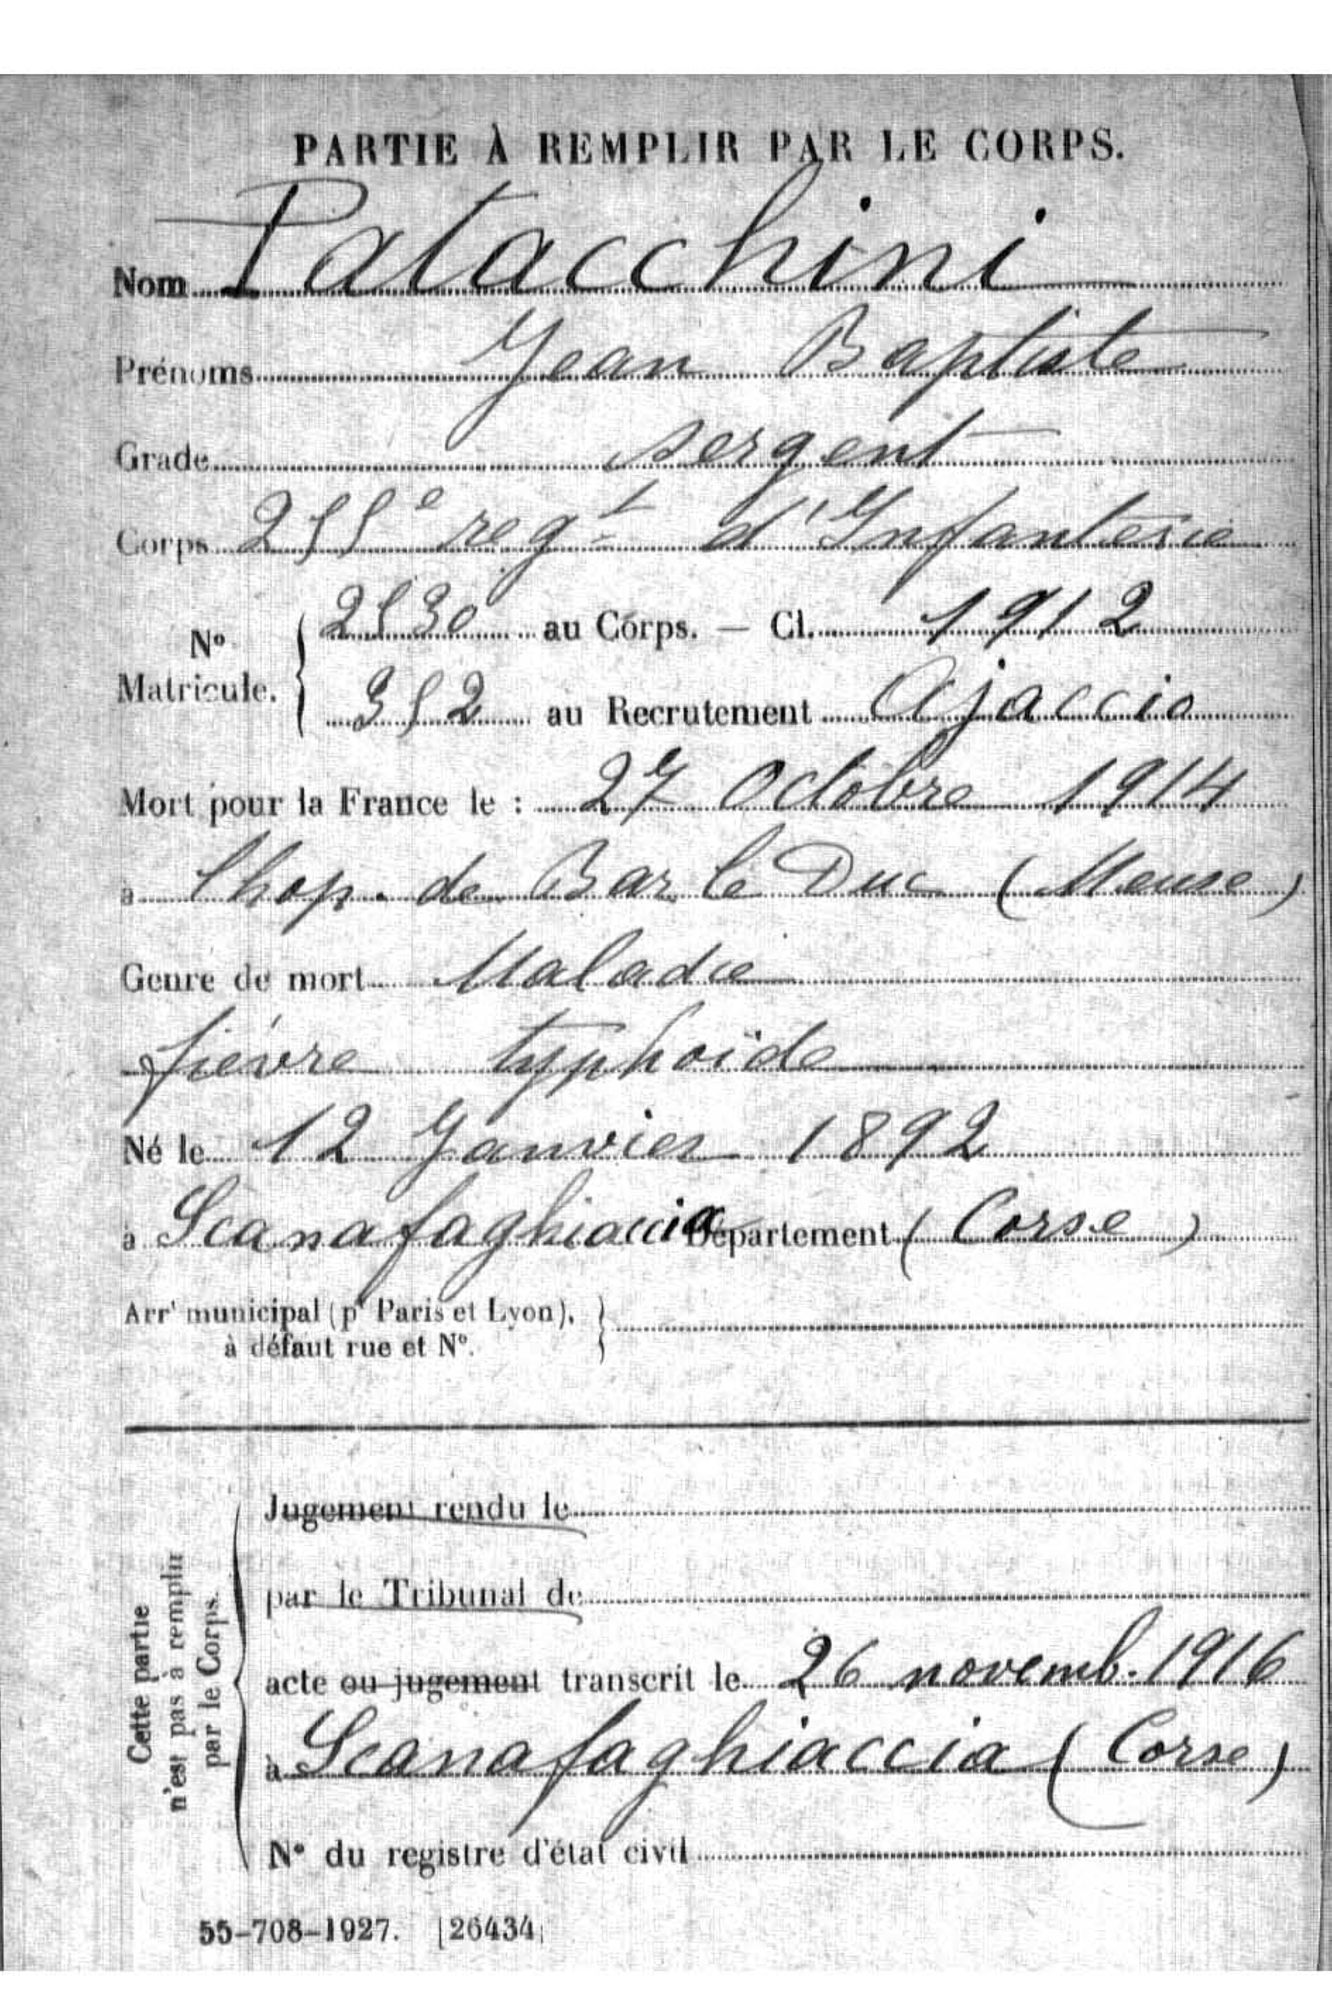 PARTIE À REMPLIR PAR LE CORPS.
Nom Patacchini
Prénoms Jean Baptiste
Grade sergent
Corps 255e regt d'Infanterie
No Matricule. 2530 au Corps. — Cl. 1912
352 au Recrutement Ajaccio
Mort pour la France le : 27 Octobre 1914
à l'hop. de Bar le Duc (Meuse)
Genre de mort Maladie
fièvre typhoïde
Né le 12 Janvier 1892
à Scanafaghiaccia Département (Corse)
Arrt municipal (pr Paris et Lyon),
à défaut rue et No.
Cette partie
n'est pas à remplir
par le Corps.
Jugement rendu le
par le Tribunal de
acte ou jugement transcrit le 26 novemb. 1916
à Scanafaghiaccia (Corse)
No du registre d'état civil
55-708-1927. [26434]